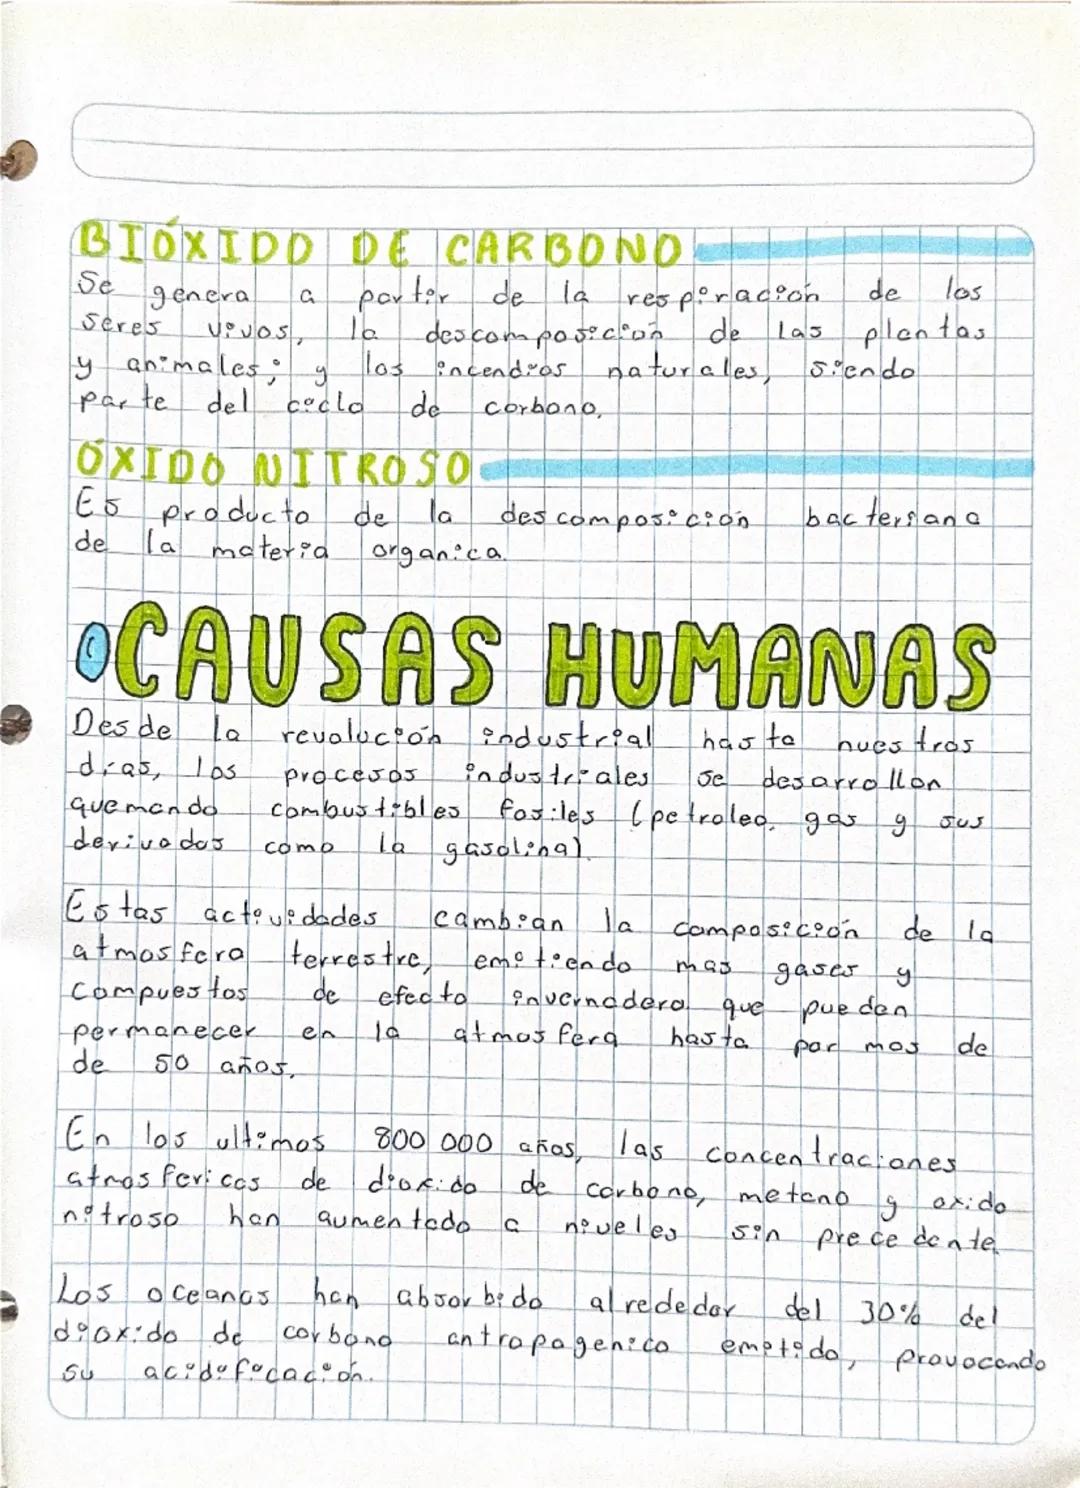 BIÓXIDO DE CARBONO
Se genera a partir de la respiración de los
seres vivos, la descomposición de las plantas
y animales; y los incendios naturales, siendo
parte del ciclo de carbono.
ÓXIDO NITROSO
Es producto de la descomposición bacteriana
de la materia organica.
CAUSAS HUMANAS
Desde la revolución industrial hasta nuestros
días, los procesos industriales se desarrollan
quemando combustibles fosiles (petroleo, gas y sus
derivados como la gasolina).
Estas actividades cambian la composición de la
atmosfera terrestre, emitiendo mas gases y
compuestos de efecto invernadero que pueden
permanecer en la atmosfera hasta por mas de
de 50 años.
En los ultimos 800 000 años, las concentraciones
atmosfericas de dioxido de carbono, metano y oxido
nitroso han aumentado a niveles sin precedente.
Los oceanos han absorbido alrededor del 30% del
dioxido de carbono antropogenico emitido, provocando
su acidificación.